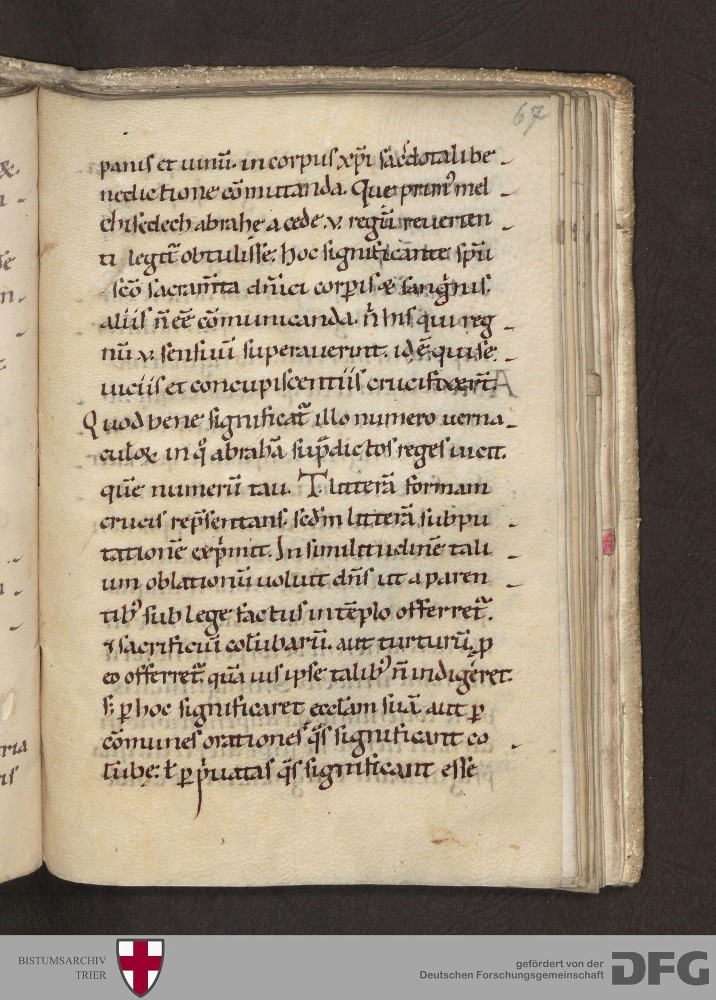 67
panis et uinū. in corpus xp̄i sac̄dotali be
nedictione cōmutanda. Que prim᷒ mel
chisedech abrahe a cede .v. regū reuerten
ti legit̄ obtulisse. hoc significante sp̄u
sc̄o sacram̄ta dn̄ici corp̄is & sanguinis.
aliis n̄ eē cōmunicanda. n̄ his qui reg
nū .v. sensuū superauerint. id ē qui se
uiciis et concupiscentiis crucifixert̄.
Quod bene significat̄ illo numero uerna
culoꝝ in q̊ abrahā sup̄dictos reges uicit.
quē numerū tau. T. litterā formam
crucis rep̄sentans. sed̄m litterā subpu
tationē exp̄mit. In similitudinē tali
um oblationū uoluit dn̄s ut a paren
tib᷒ sub lege factus in tēplo offerret̄.
⁊ sacrificiū colūbarū. aut turturū ꝓ
eo offerret̄. quāuis ipse talib᷒ n̄ indigeret.
s; ꝑ hoc significaret eccl̄am suā aut ꝑ
cōmunes orationes q̄s significant co
lūbę. ł ꝑ p̄uatas q̄s significant esse
BISTUMSARCHIV
TRIER
gefördert von der
Deutschen Forschungsgemeinschaft
DFG